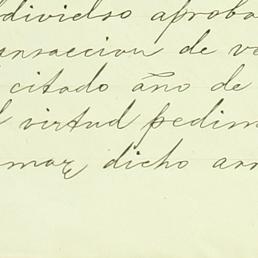 divielso aprobo
ansaccion de ve
citado año de
virtud pedim
mar dicho arr